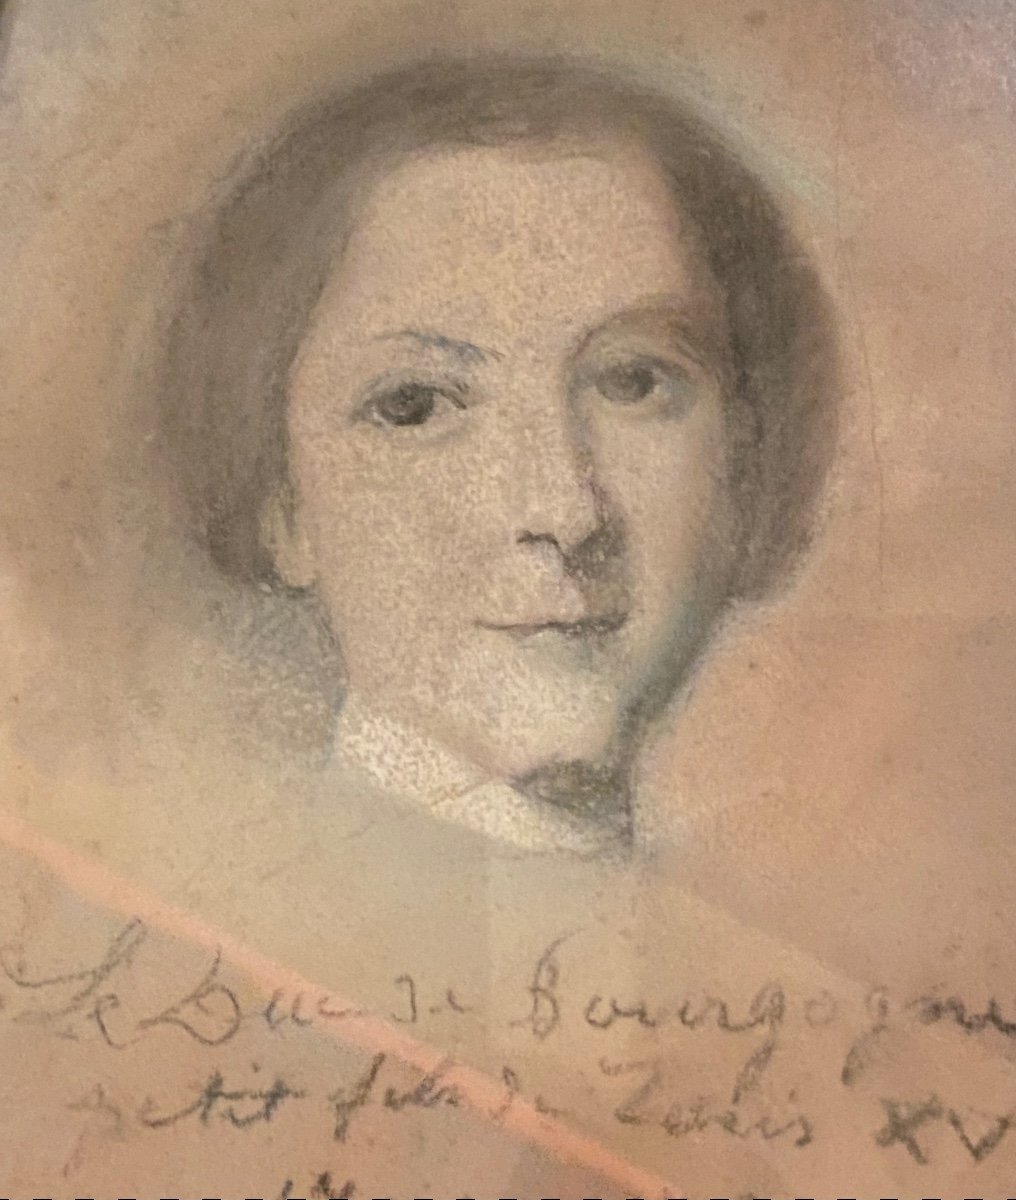 Le Duc de Bourgogne
petit fils de Louis XV